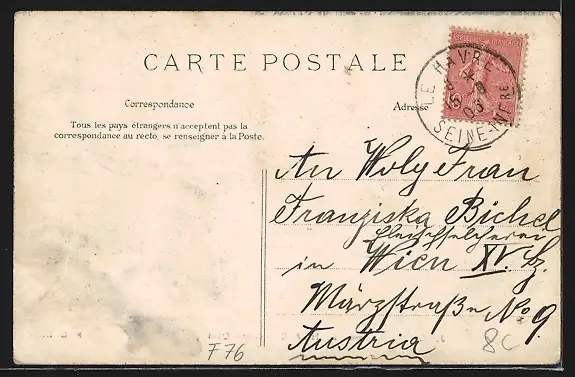 CARTE POSTALE
Correspondance
Adresse
Tous les pays étrangers n'acceptent pas la
correspondance au recto, se renseigner à la Poste.
LE HAVRE
SEINE-INFRE
An Wolg Frau
Franziska Bichel
in Wien XV. Bz.
Märzstraße No 9.
Austria
F 76
8C